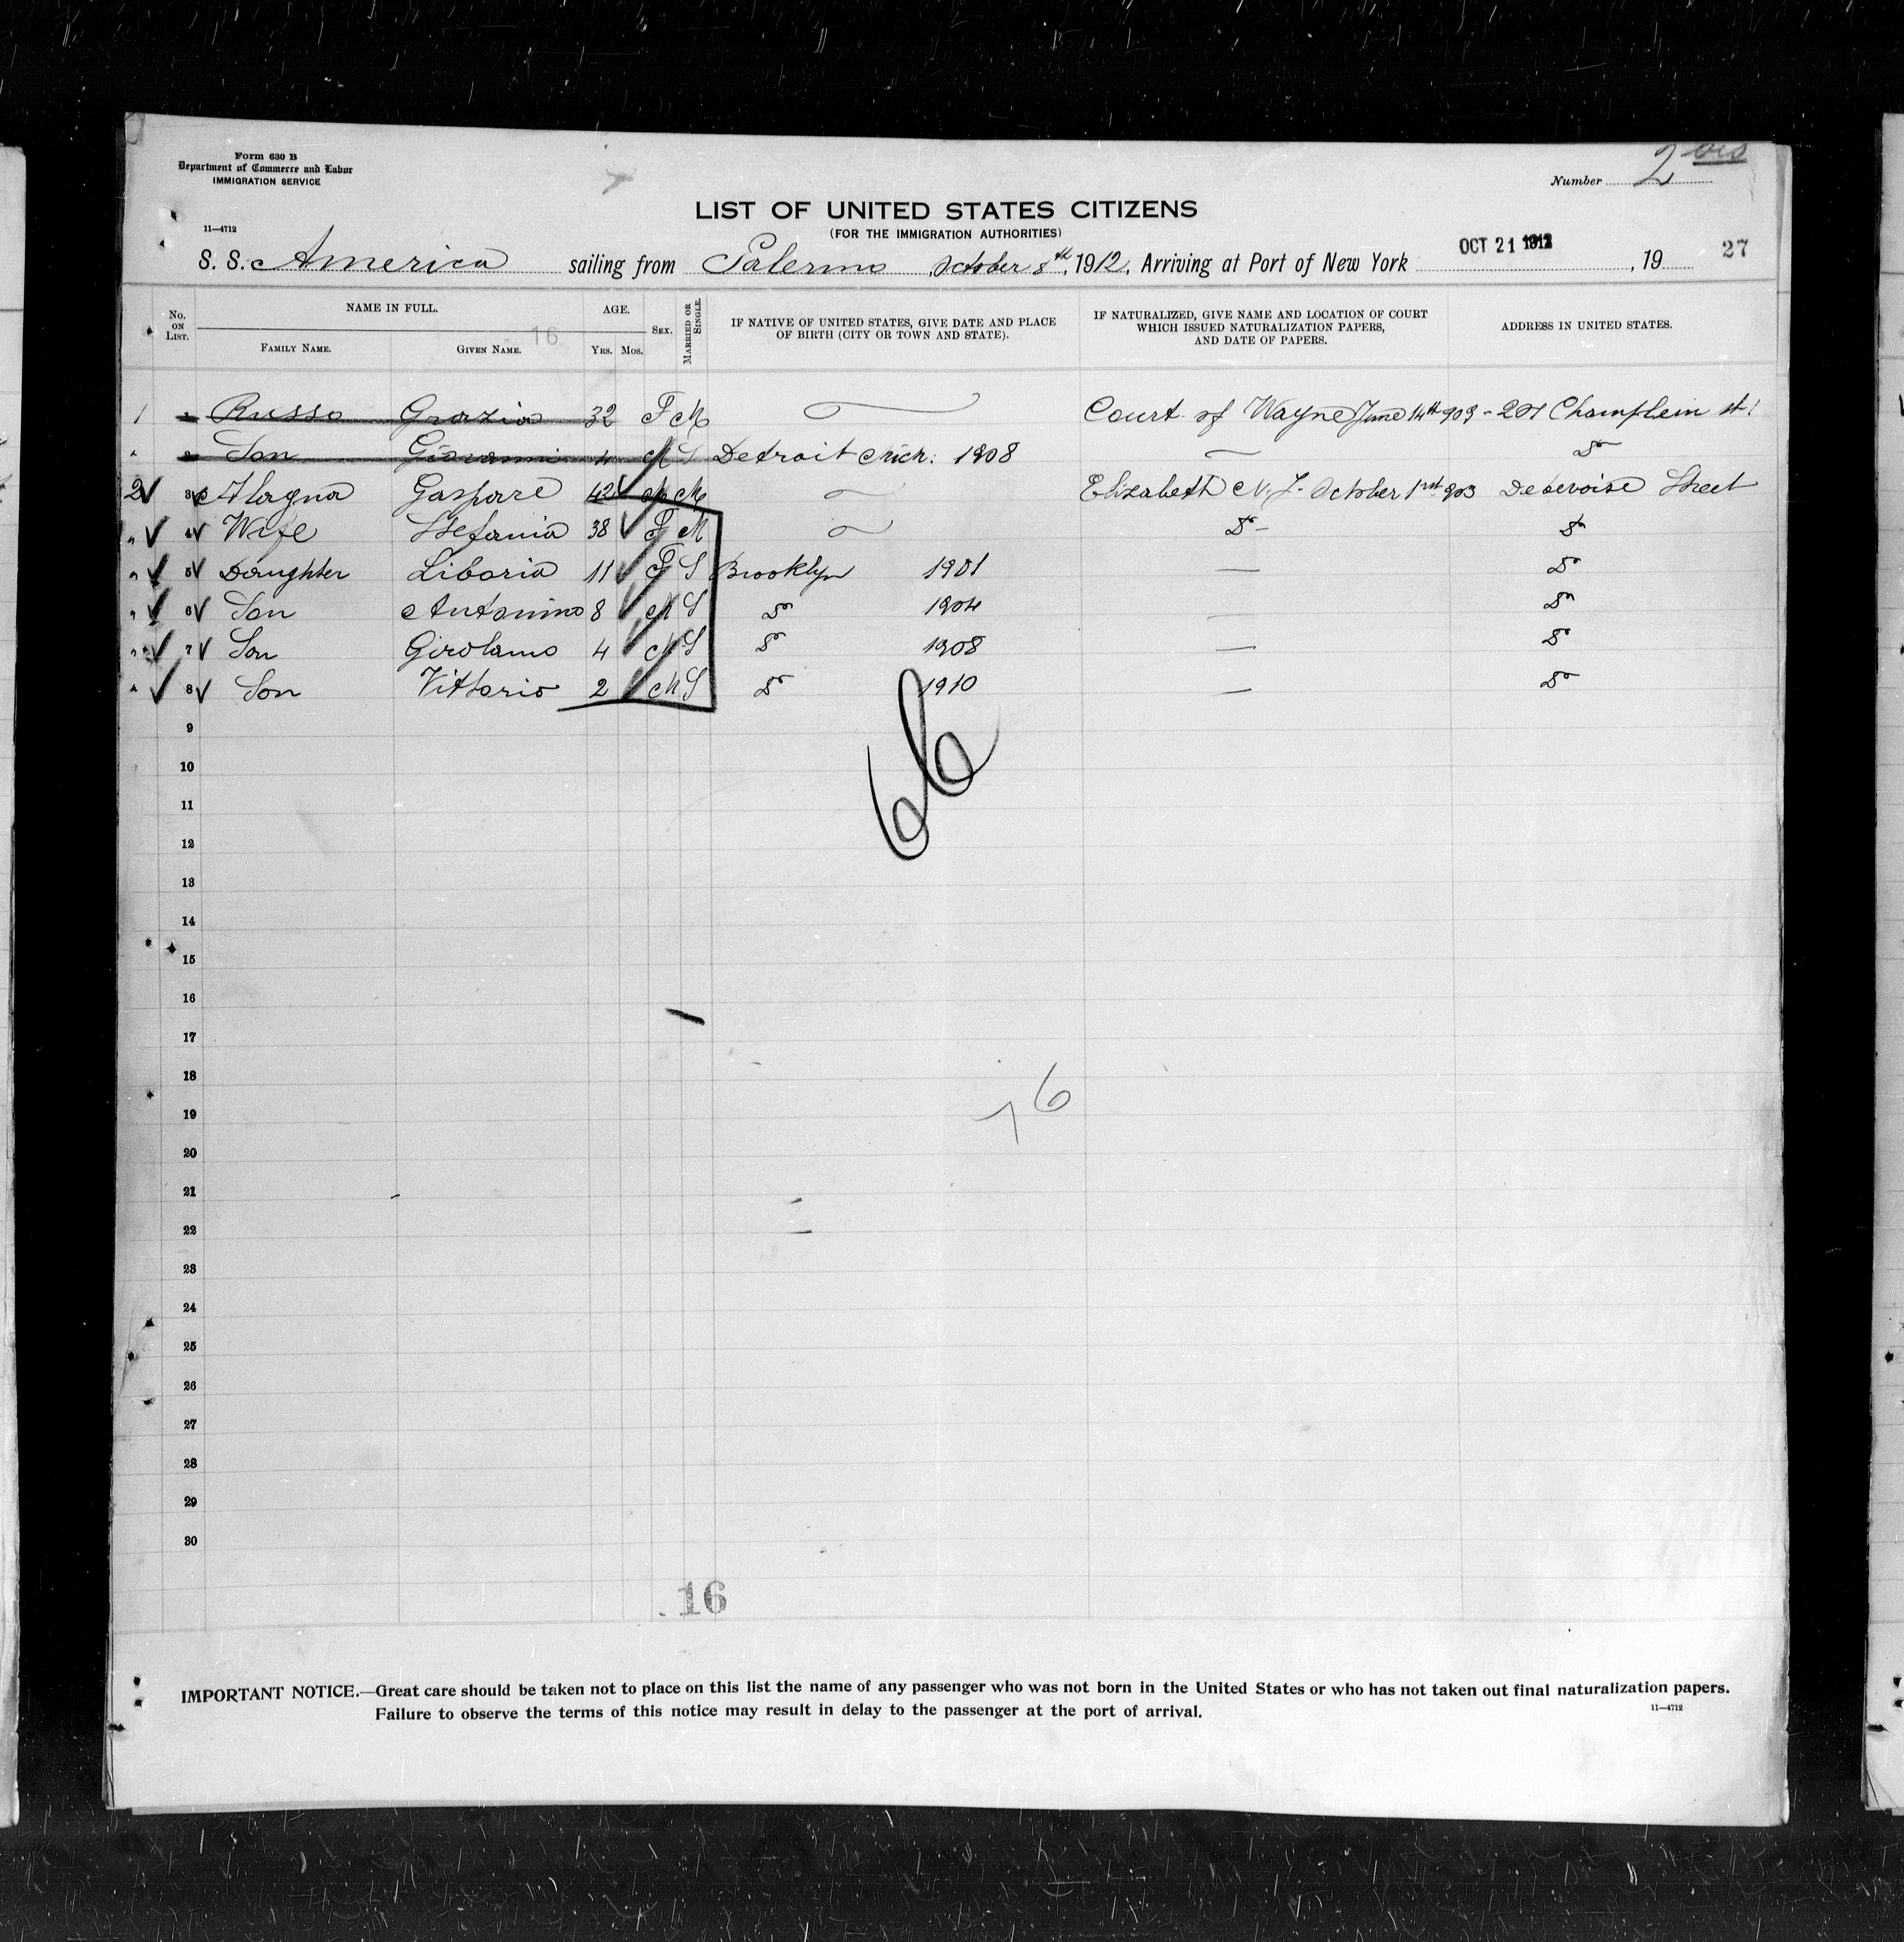 Form 630 B
Department of Commerce and Labor
IMMIGRATION SERVICE
Number 2 bis
LIST OF UNITED STATES CITIZENS
(FOR THE IMMIGRATION AUTHORITIES)
11—4712
S. S. America sailing from Palermo October 8th, 1912, Arriving at Port of New York OCT 21 1912, 19 27
No. ON LIST. NAME IN FULL. FAMILY NAME. GIVEN NAME. 16 AGE. YRS. MOS. SEX. MARRIED OR SINGLE. IF NATIVE OF UNITED STATES, GIVE DATE AND PLACE OF BIRTH (CITY OR TOWN AND STATE). IF NATURALIZED, GIVE NAME AND LOCATION OF COURT WHICH ISSUED NATURALIZATION PAPERS, AND DATE OF PAPERS. ADDRESS IN UNITED STATES.
1 Russo Grazia 32 F M Court of Wayne June 14th 903 - 201 Champlein st
" 2 Son Giovanni 4 M S Detroit Mich: 1908 — Do
2 3 Gaspare 42 M M Elizabeth N. J. October 1st 903 Debevoise Street
" 4 Wife Stefania 38 F M Do - Do
" 5 Daughter Liboria 11 F S Brooklyn 1901 — Do
" 6 Son Antonino 8 M S Do 1904 — Do
" 7 Son Girolamo 4 M S Do 1908 — Do
" 8 Son Vittorio 2 M S Do 1910 — Do
9
66
10
11
12
13
14
15
16
17
18
19
16
20
21
22
23
24
25
26
27
28
29
30
16
IMPORTANT NOTICE.—Great care should be taken not to place on this list the name of any passenger who was not born in the United States or who has not taken out final naturalization papers.
Failure to observe the terms of this notice may result in delay to the passenger at the port of arrival.
11—4712